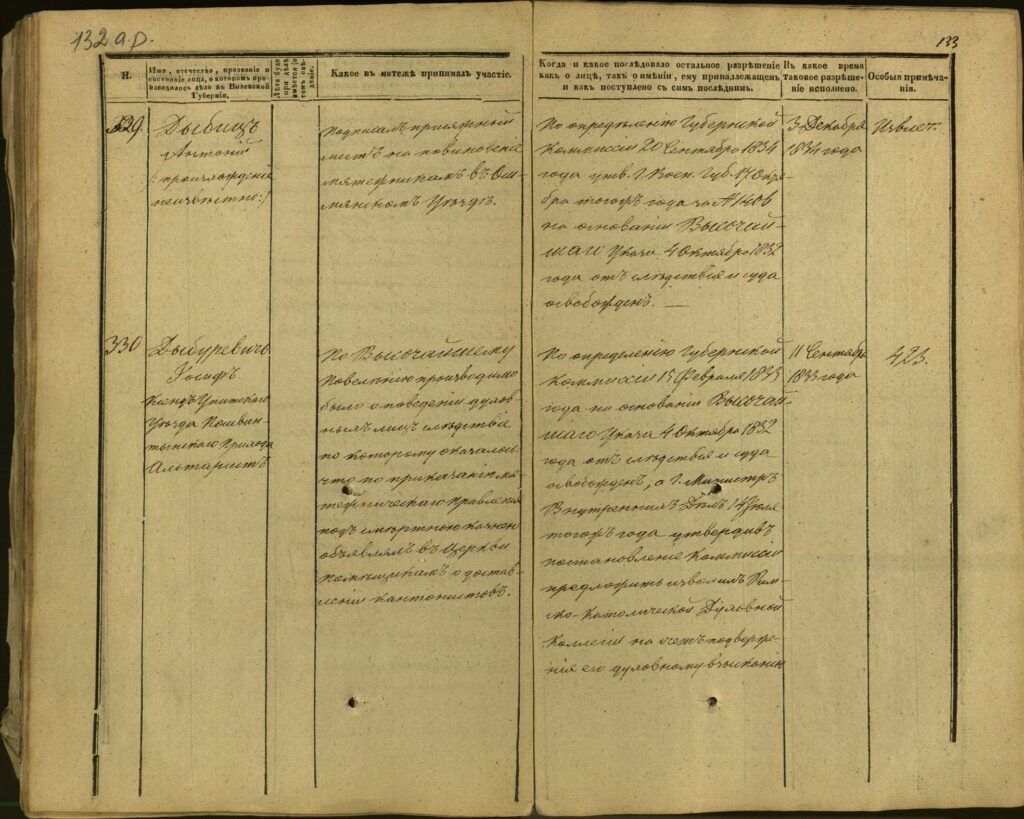 132 a.p.
133
Н.
Имя, отечество, прозваніе и
состояніе лица, о которомъ про-
изводилось дѣло въ Виленской
Губерніи.
Какое въ матежѣ принималъ участіе.
Когда и какое послѣдовало остальное разрѣшеніе
какъ о лицѣ, такъ о имѣніи, ему принадлежащемъ
и какъ поступлено съ симъ послѣднимъ.
Въ какое время
таковое разрѣше-
ніе исполнено.
Особыя примѣча-
нія.
329.
Дыбицъ
Антоній
(:происхожденіе
неизвѣстно:)
Подписалъ присяжный
листъ на повиновеніе
мятежникамъ въ Ош-
мянскомъ Уѣздѣ.
По опредѣленію Губернской
Коммиссіи 20 Сентября 1834
года утв. Г. Воен. Губ. 17 Октя-
бра тогожъ года за № 1406
на основаніи Высочай-
шаго Указа 4 Октября 1832
года отъ слѣдствія и суда
освобожденъ. —
3 Декабря
1834 года
Извлеч.
330
Дыбуревичъ
Іосифъ
Ксендзъ Упитскаго
Уѣзда
Прихода
Альтаристъ
По Высочайшему
повелѣнію производимо
было о поведеніи духов-
ныхъ лицъ слѣдствіе
по которому оказалось
что по приказанію мя-
тежническаго Правленія
подъ смертною казнею
объявлялъ въ Церкви
помѣщикамъ о достав-
леніи кантонистовъ.
По опредѣленію Губернской
Коммиссіи 15 Февраля 1833
года на основаніи Высочай-
шаго Указа 4 Октября 1832
года отъ слѣдствія и суда
освобожденъ, а Г. Министръ
Внутреннихъ Дѣлъ 14 Іюля
тогожъ года утвердивъ
постановленіе Коммиссіи
предложить изволилъ Рим-
ско-Католической Духовной
Коллегіи на счетъ подверже-
нія его духовному взысканію
11 Сентября
1833 года
423.